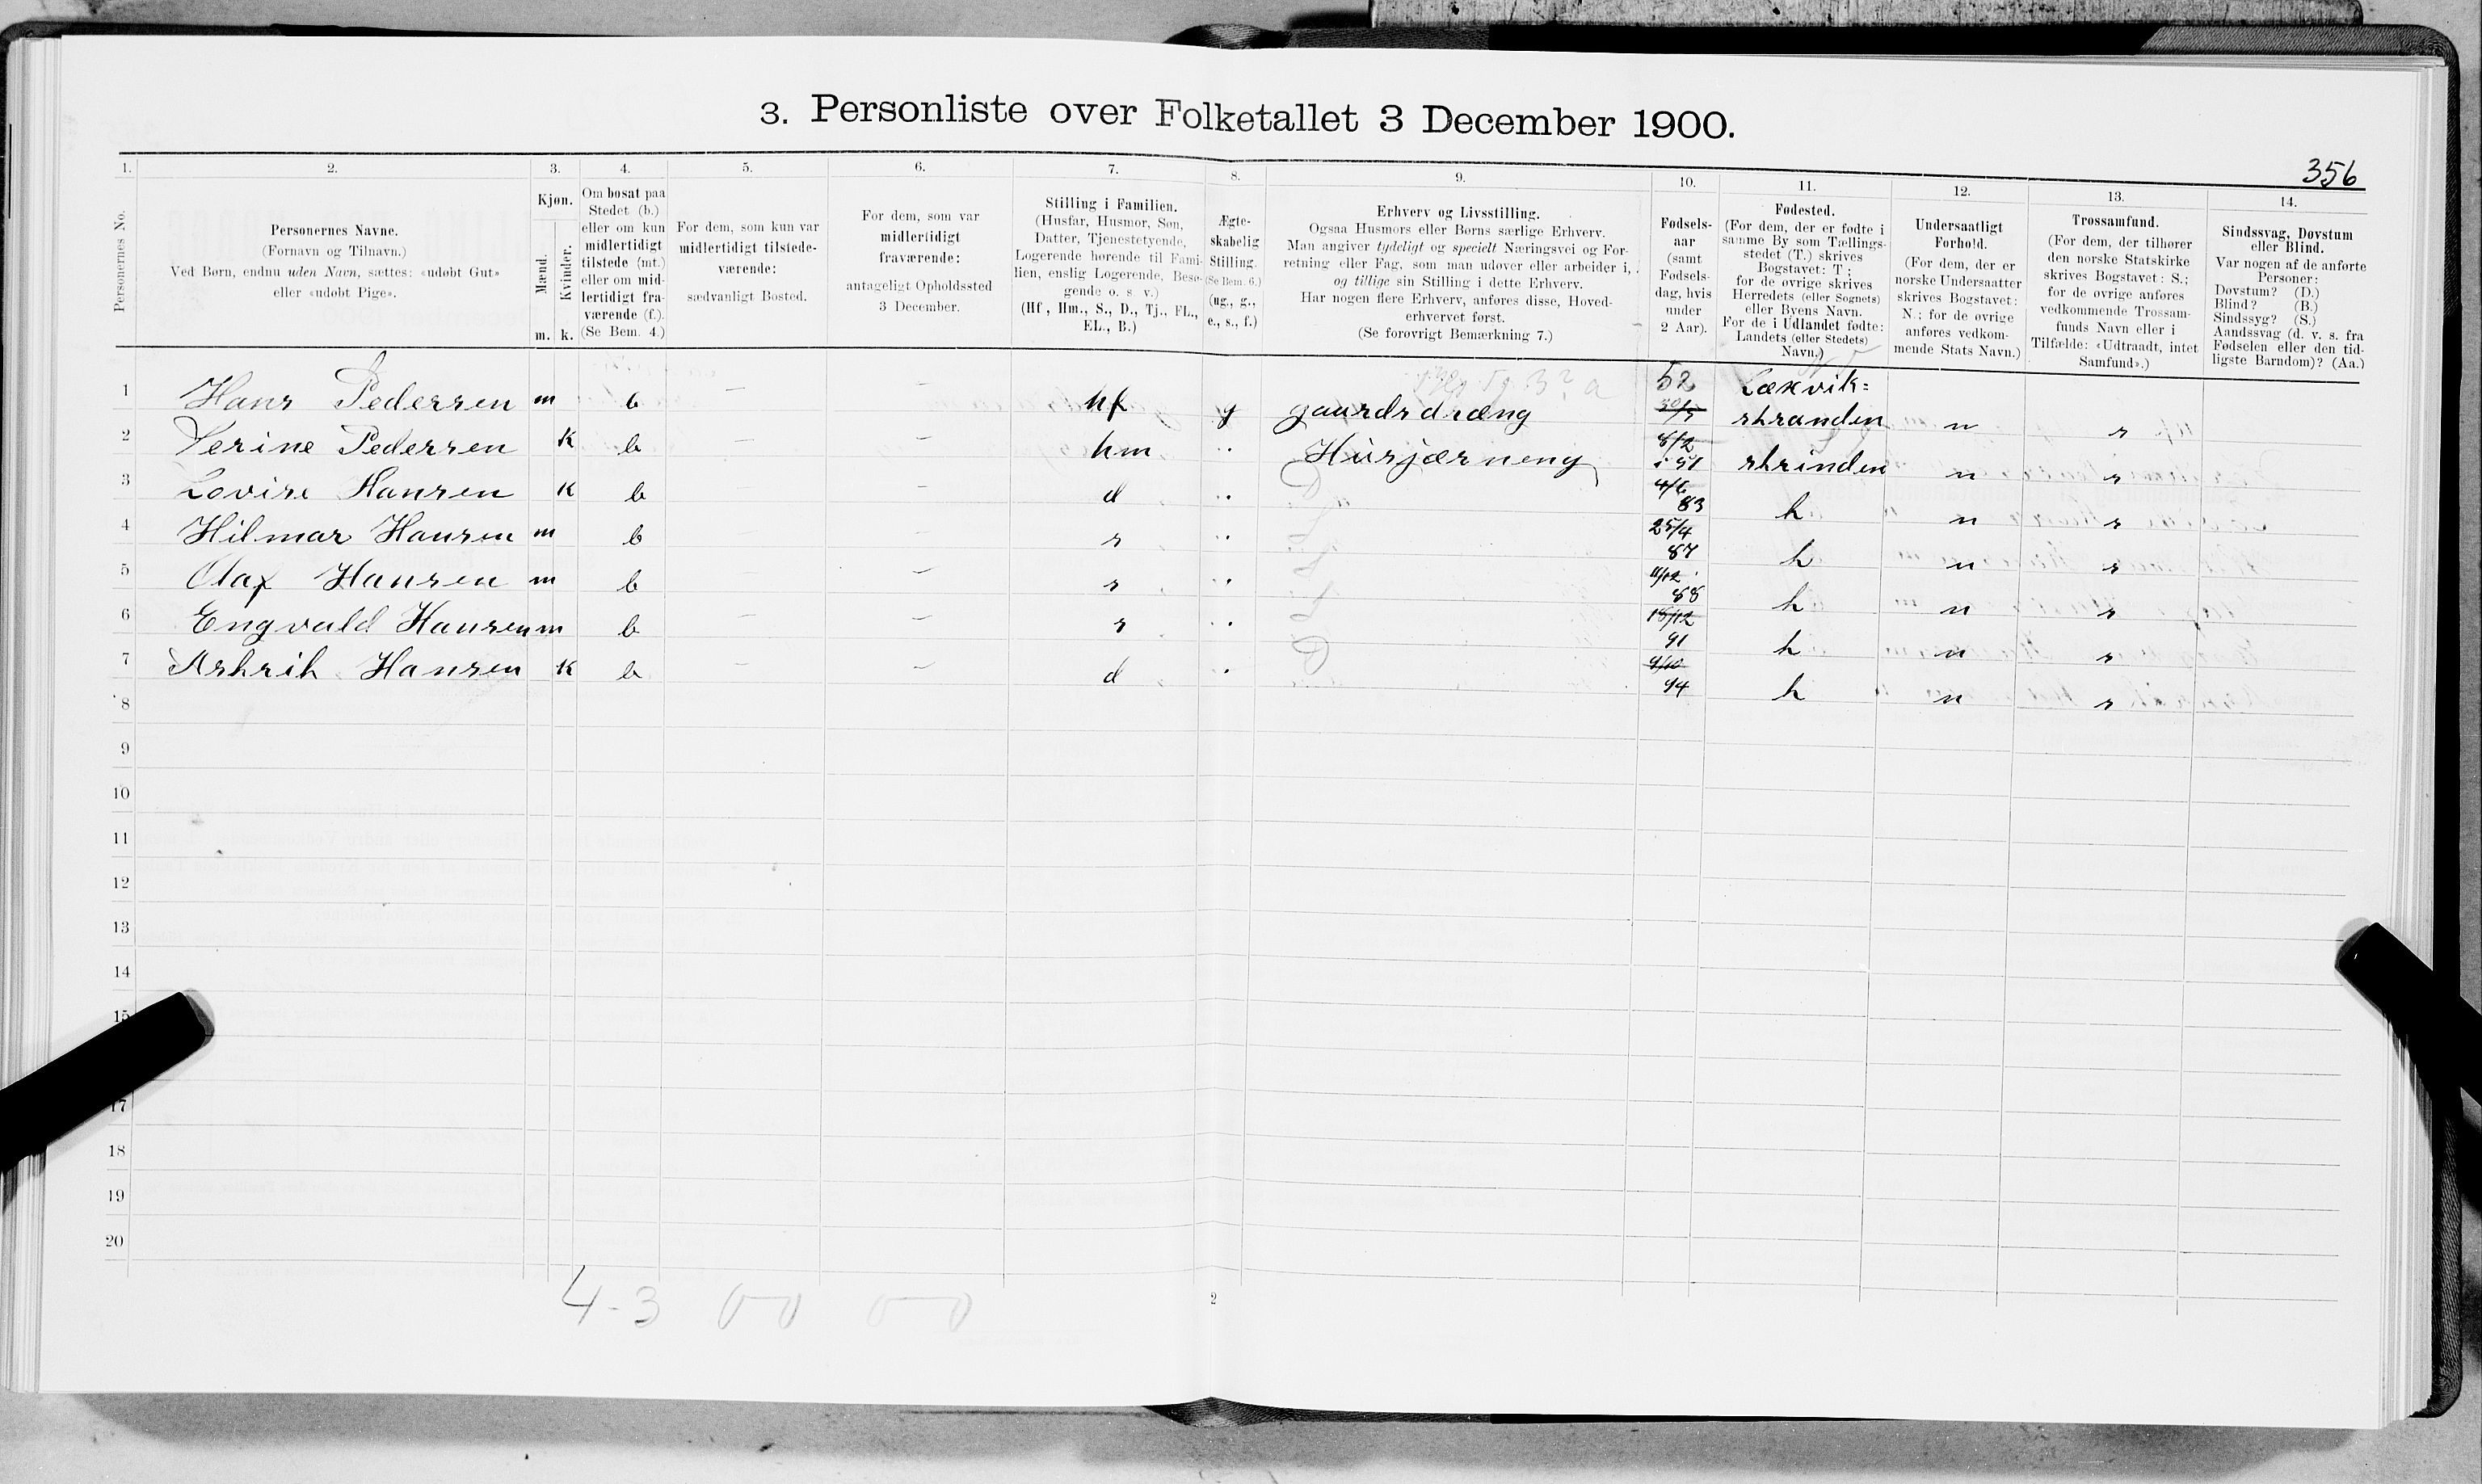 3. Personliste over Folketallet 3 December 1900.
356
1. 2. 3. 4. 5. 6. 7. 8. 9. 10. 11. 12. 13. 14.
Personernes No.
Personernes Navne.
(Fornavn og Tilnavn.)
Ved Børn, endnu uden Navn, sættes: «udøbt Gut»
eller «udøbt Pige».
Kjøn.
Mænd.
Kvinder.
m. k.
Om bosat paa
Stedet (b.)
eller om kun
midlertidigt
tilstede (mt.)
eller om mid-
lertidigt fra-
værende (f.).
(Se Bem. 4.)
For dem, som kun var
midlertidigt tilstede-
værende:
sædvanligt Bosted.
For dem, som var
midlertidigt
fraværende:
antageligt Opholdssted
3 December.
Stilling i Familien.
(Husfar, Husmor, Søn,
Datter, Tjenestetyende,
Logerende hørende til Fami-
lien, enslig Logerende, Besø-
gende o. s. v.)
(Hf., Hm., S., D., Tj., FL.,
EL., B.)
Ægte-
skabelig
Stilling.
(Se Bem. 6.)
(ug., g.,
e., s., f.)
Erhverv og Livsstilling.
Ogsaa Husmors eller Børns særlige Erhverv.
Man angiver tydeligt og specielt Næringsvei og For-
retning eller Fag, som man udøver eller arbeider i,
og tillige sin Stilling i dette Erhverv.
Har nogen flere Erhverv, anføres disse, Hoved-
erhvervet først.
(Se forøvrigt Bemærkning 7.)
Fødsels-
aar
(samt
Fødsels-
dag, hvis
under
2 Aar).
Fødested.
(For dem, der er fødte i
samme By som Tællings-
stedet (T.) skrives
Bogstavet: T;
for de øvrige skrives
Herredets (eller Sognets)
eller Byens Navn.
For de i Udlandet fødte:
Landets (eller Stedets)
Navn.)
Undersaatligt
Forhold.
(For dem, der er
norske Undersaatter
skrives Bogstavet:
N.; for de øvrige
anføres vedkom-
mende Stats Navn.)
Trossamfund.
(For dem, der tilhører
den norske Statskirke
skrives Bogstavet: S.;
for de øvrige anføres
vedkommende Trossam-
funds Navn eller i
Tilfælde: «Udtraadt, intet
Samfund».)
Sindssvag, Døvstum
eller Blind.
Var nogen af de anførte
Personer:
Døvstum? (D.)
Blind? (B.)
Sindssyg? (S.)
Aandssvag (d. v. s. fra
Fødselen eller den tid-
ligste Barndom)? (Aa.)
1 Hans Pedersen m b – – hf g gaardsdræng 52 30/5 Læxvik= stranden n s
2 Verine Pedersen K b – – hm " Husjærneng 8/2 i 51 strinden n s
3 Lovise Hansen K b – – d " 4/6 83 t n s
4 Hilmar Hansen m b – – s " 25/4 87 t n s
5 Olaf Hansen m b – – s " 11/12 88 t n s
6 Engvald Hansen m b – – s " 18/12 91 t n s
7 Astrih Hansen K b – – d " 9/10 94 t n s
8
9
10
11
12
13
14
15
17
18
19
20
4-3 0-0 0-0
2